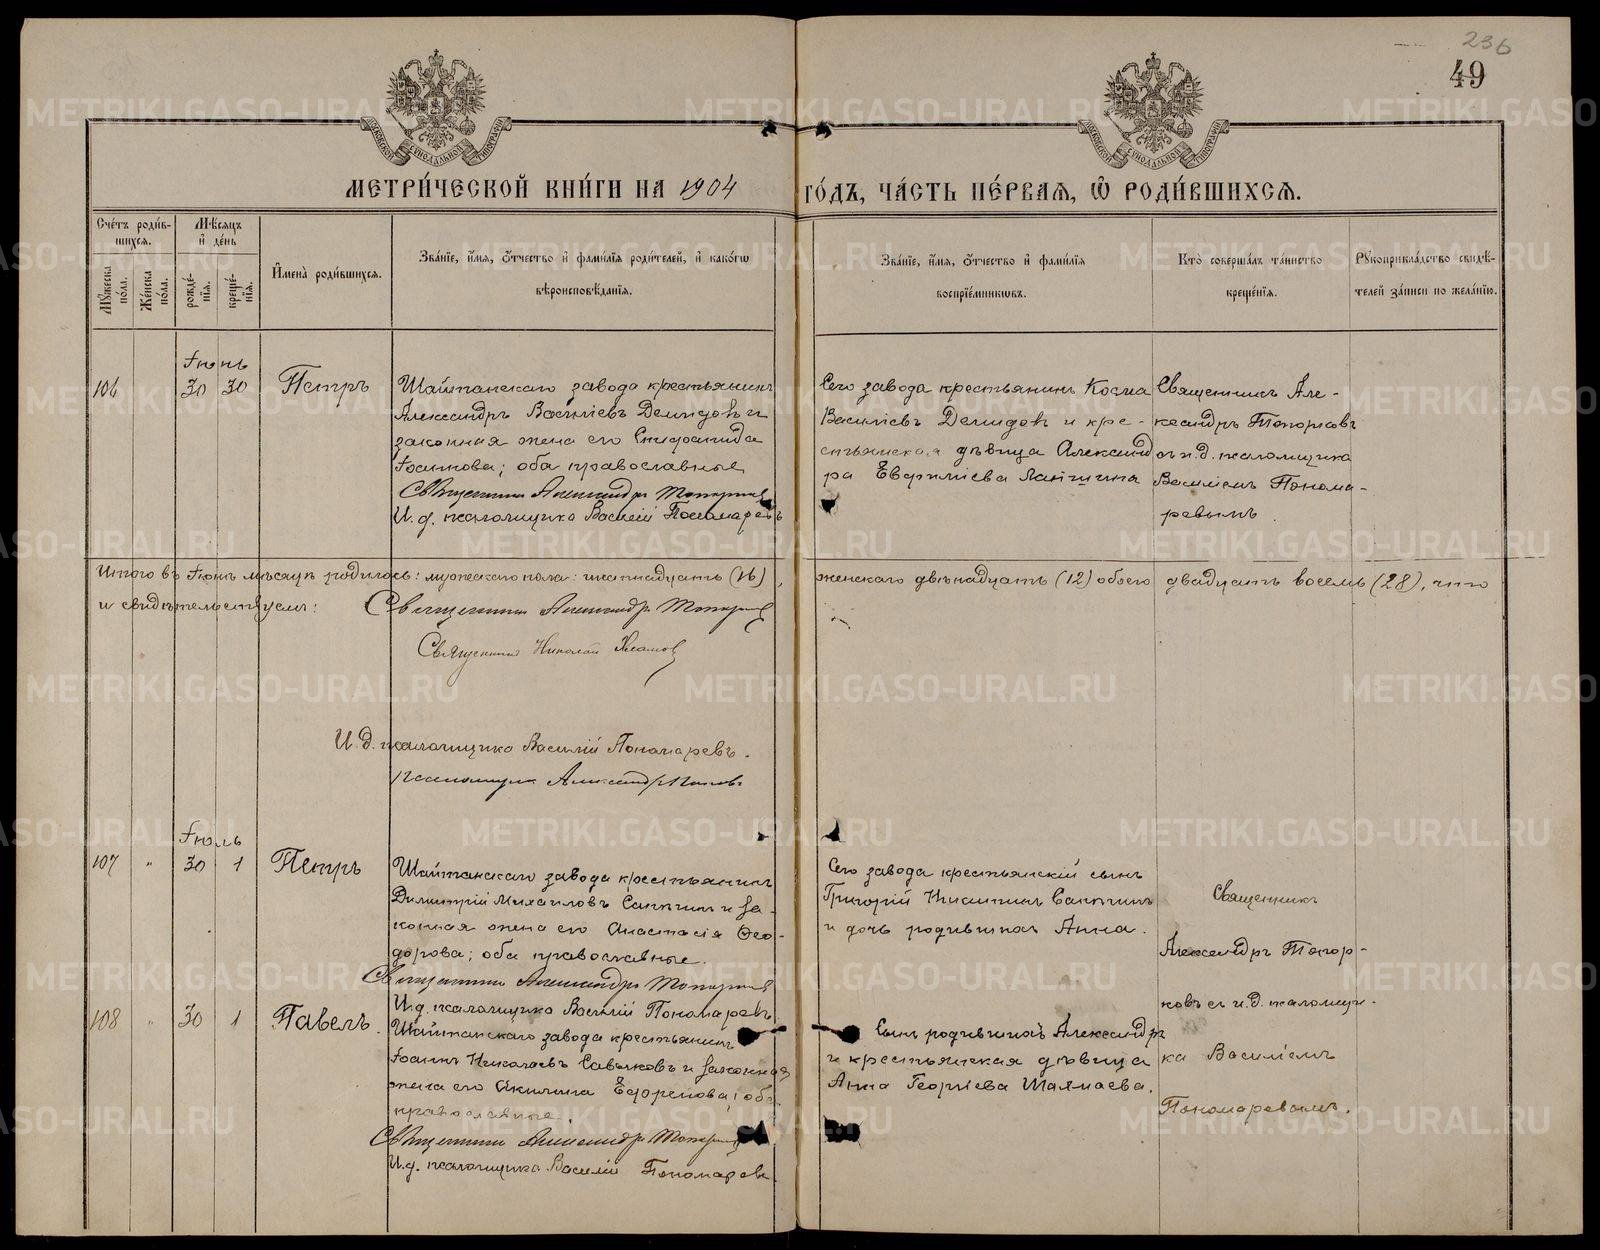 236
49
МЕТРИ́ЧЕСКОЙ КНИ́ГИ НА 1904 ГО́ДЪ, ЧА́СТЬ ПЕ́РВАѦ, Ѽ РОДИ́ВШИХСѦ.
Сче́тъ роди́вшихся.
Мꙋ́жеска по́ла.
Же́нска по́ла.
Мѣ́сяцъ и҆ де́нь
рожде́нїя.
креще́нїя.
И҆мена̀ роди́вшихся.
Зва́нїе, и҆́мя, ѻ҆́тчество и҆ фами́лїя роди́телей, и҆ како́гѡ вѣроисповѣ́данїя.
Зва́нїе, и҆́мя, ѻ҆́тчество и҆ фами́лїя воспрїе́мникѡвъ.
Кто̀ соверша́лъ та́инство креще́нїя.
Рꙋкоприкла́дство свидѣ́телей за́писи по жела́нїю.
Іюнь
106 30 30 Петръ
Шайтанскаго завода крестьянинъ
Александръ Василіевъ Демидовъ и
законная жена его Епифанида
Іоаннова; оба православные
Священникъ Александръ Топорковъ
И. д. псаломщика Василій Пономаревъ
Сего завода крестьянинъ Косма
Василіевъ Демидовъ и кре-
стьянская дѣвица Александ
ра Евфиміева
Священникъ Але-
ксандръ Топорковъ
съ и. д. псаломщика
Василіемъ Понома-
ревымъ
Итого въ Іюнѣ мѣсяцѣ родилось: мужескаго пола: шестнадцать (16), женскаго двѣнадцать (12) обоего двадцать восемь (28), что
и свидѣтельствуемъ: Священникъ Александръ Топорковъ
Священникъ Николай
И. д. псаломщика Василій Пономаревъ.
псаломщикъ Александръ Поповъ
Іюль
107 " 30 1 Петръ
Шайтанскаго завода крестьянинъ
Димитрій Михаиловъ Сапкинъ и за-
конная жена его Анастасія Ѳео-
дорова; оба православные.
Священникъ Александръ Топорковъ
И. д. псаломщика Василій Пономаревъ
Сего завода крестьянскій сынъ
Григорій Никитинъ Сапкинъ
и дочь родившихъ Анна.
Священникъ
Александръ Топор-
ковъ съ и. д. псаломщи-
ка Василіемъ
Пономаревымъ.
108 " 30 1 Павелъ.
Шайтанскаго завода крестьянинъ
Іоаннъ Николаевъ Савычковъ и законная
жена его Акилина Ефремова; оба
православные.
Священникъ Александръ Топорковъ
И. д. псаломщика Василій Пономаревъ
Сынъ родившихъ Александръ
и крестьянская дѣвица
Анна Георгіева Шалмаева.
МОСКОВСКОЙ СѴНОДАЛЬНОЙ ТИПОГРАФІИ
МОСКОВСКОЙ СѴНОДАЛЬНОЙ ТИПОГРАФІИ
METRIKI.GASO-URAL.RU